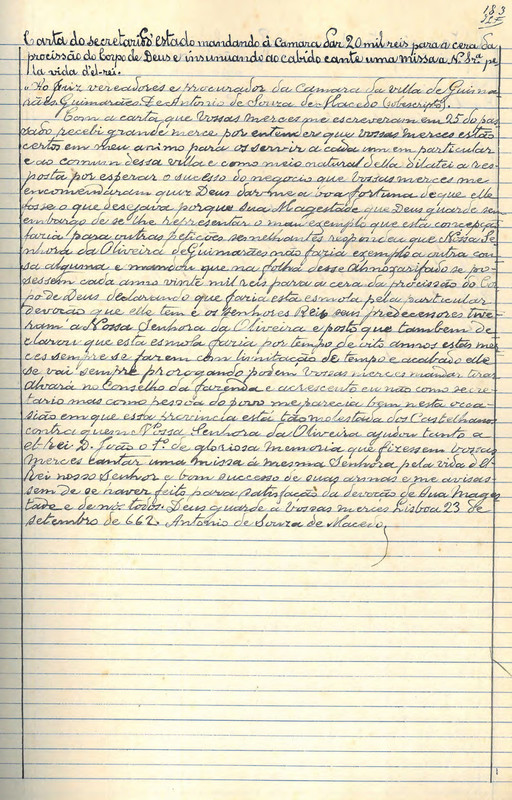 183
Carta do secretario d'estado mandando á Camara dar 20 mil reis para a cera da
procissão do Corpo de Deus e insinuando ao cabido cante uma missa a N.ª Sr.ª pe-
la vida d'el-rei.
"Ao juiz vereadores e procurador da camara da villa de Guima-
rães Guimarães De Antonio de Souza de Macedo (sobescripto).
Com a carta que vossas merces me escreveram em 25 do pas-
sado recebi grande merce por entender que vossas merces estão
certos em meu animo para os servir a cada um em particular
e ao comum dessa villa e como meio natural della dilatei a res-
posta por esperar o sucesso do negocio que vossas merces me
encomendaram quiz Deus dar me a boa fortuna de que elle
fosse o que desejava porque Sua Magestade que Deus guarde sem
embargo de se lhe representar o mau exemplo que esta concepção
faria para outras petições semelhantes respondeu que Nossa Se-
nhora da Oliveira de Guimarães não faria exemplo a outra cou-
sa alguma e mandou que na folha desse Almoxarifado se po-
sessem cada anno vinte mil reis para a cera da procissão do Cor-
po de Deus declarando que faria esta esmola pela particular
devoção que elle tem e os Senhores Reis seus predecessores tive-
ram a Nossa Senhora da Oliveira e posto que tambem de-
clarou que esta esmola faria por tempo de oito annos estas mer-
ces sempre se fazem com limitação de tempo e acabado elle
se vai sempre prorogando podem vossas merces mandar tirar
alvará no Conselho da fazenda e acrescento eu não como secre-
tario mas como pessoa do povo me parecia bem nesta occa-
sião em que esta provincia está tão molestada dos Castelhanos
contra quem Nossa Senhora da Oliveira ajudou tanto a
el-rei D. João o 1.º de gloriosa memoria que fizessem vossas
merces cantar uma missa á mesma Senhora pela vida d'El-
Rei nosso Senhor e bom successo de suas armas e me avisas-
sem de se haver feito para satisfação da devoção de Sua Mages-
tade e de nós todos. Deus guarde a Vossas merces Lisboa 23 de
setembro de 662. Antonio de Souza de Macedo,